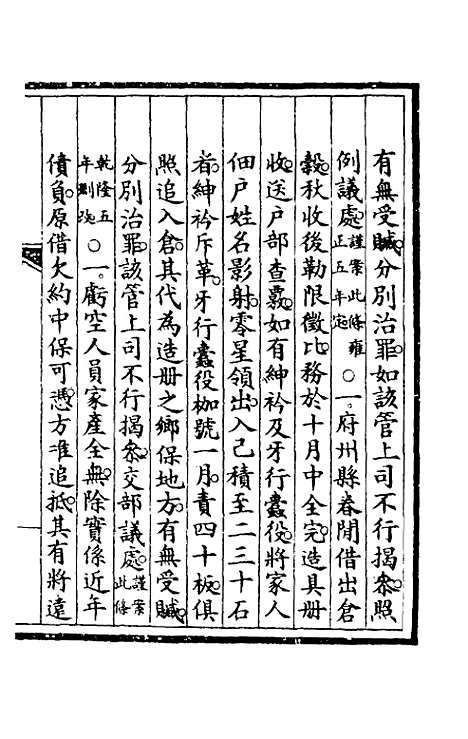 有無受贓分別治罪如該管上司不行揭參照
例議處謹案此條雍正五年定○一府州縣春閒借出倉
穀秋收後勒限徵比務於十月中全完造具册
收送戶部查覈如有紳衿及牙行蠹役將家人
佃戶姓名影射零星領出入己積至二三十石
者紳衿斥革牙行蠹役枷號一月責四十板俱
照追入倉其代為造册之鄉保地方有無受贓
分別治罪該管上司不行揭參交部議處謹案此條
乾隆五年刪改○一虧空人員家產全無除實係近年
債負原借欠約中保可憑方准追抵其有將遠